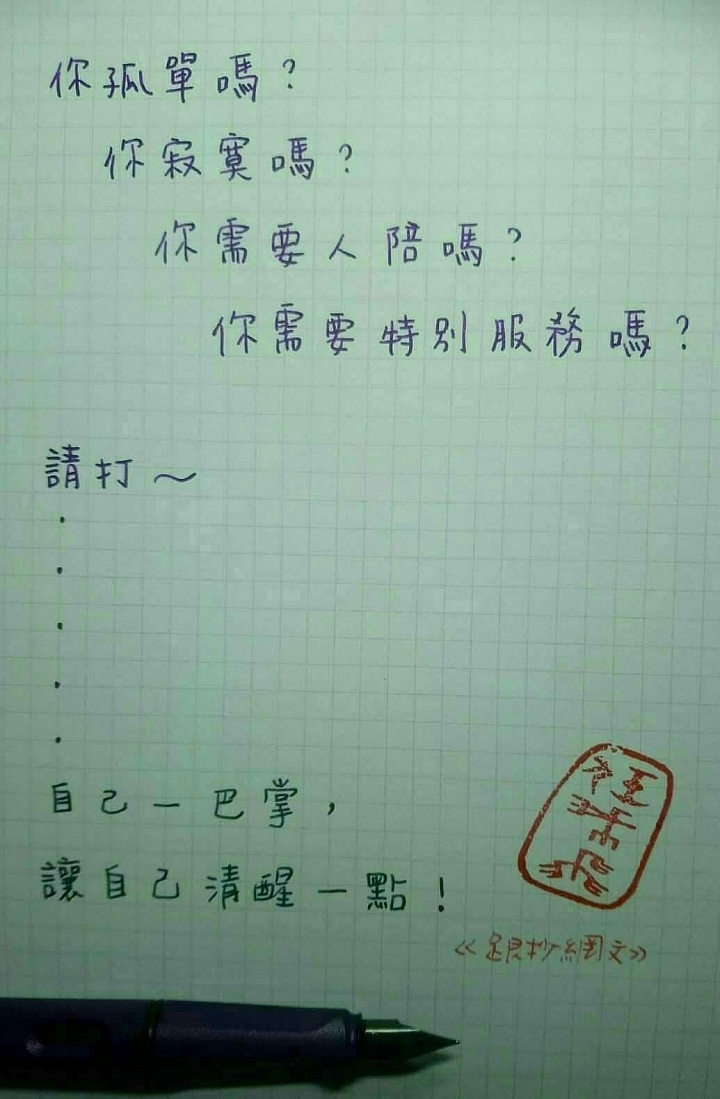 你孤單嗎?
你寂寞嗎?
你需要人陪嗎?
你需要特別服務嗎?
請打～
·
·
·
·
·
自己一巴掌,
讓自己清醒一點!
《跟抄網文》